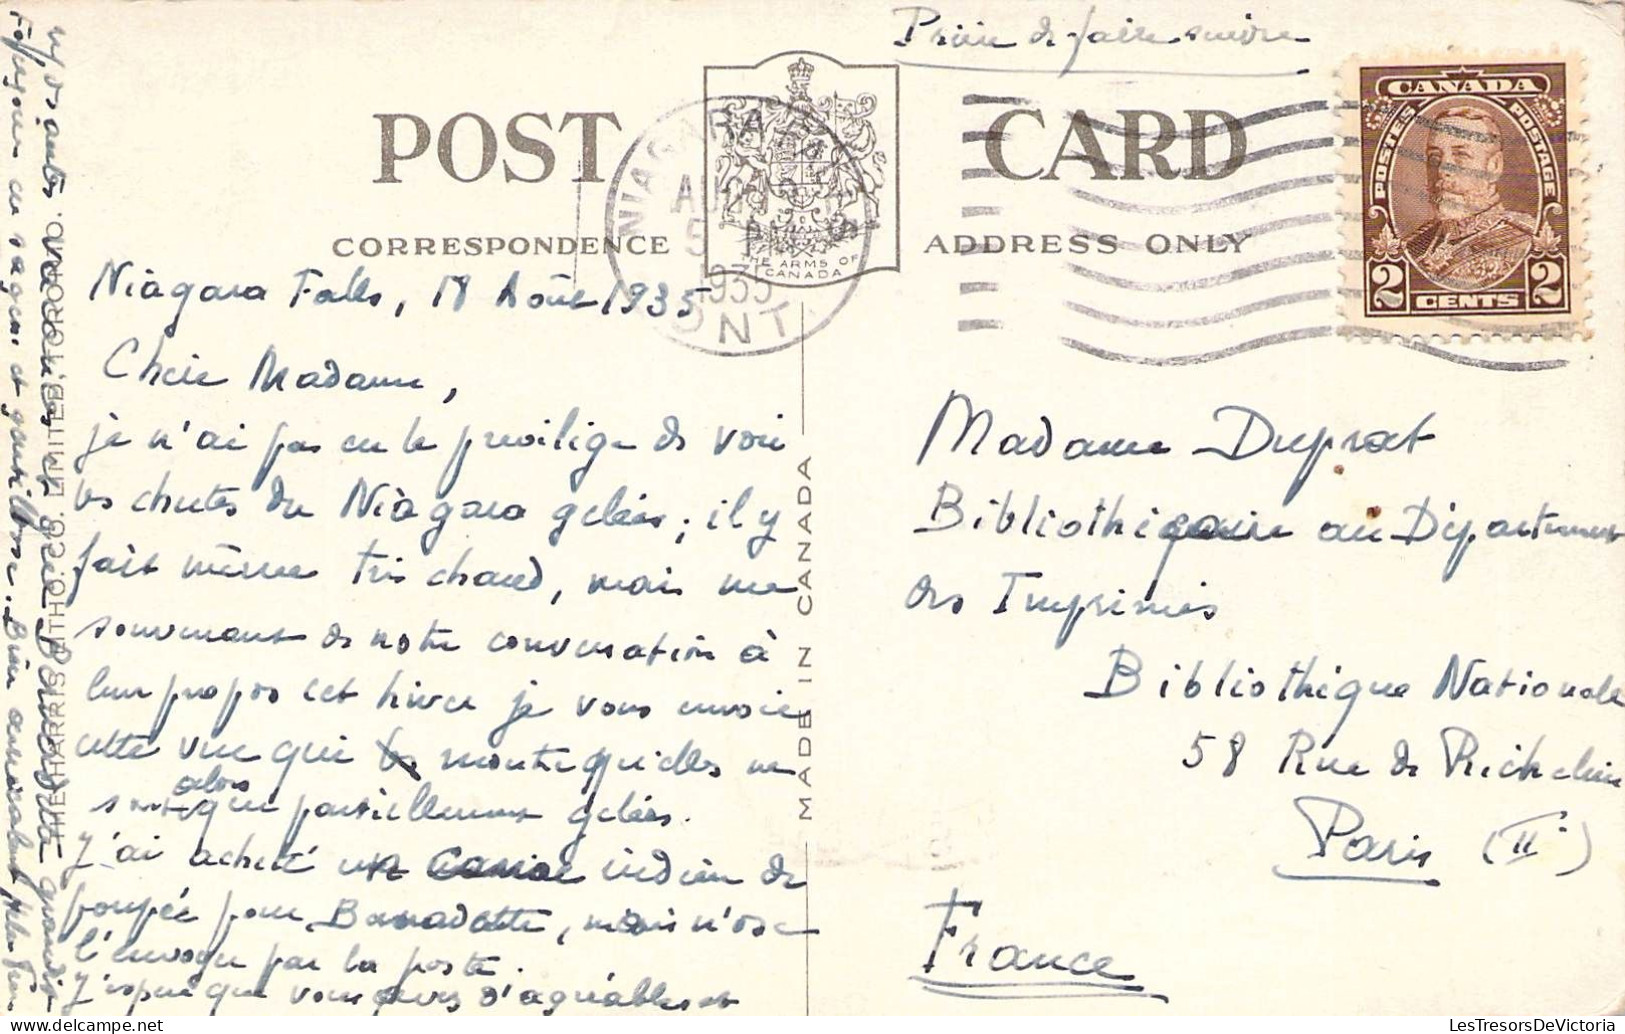 Prière de faire suivre
POST CARD
CORRESPONDENCE
ADDRESS ONLY
THE ARMS OF
CANADA
NIAGARA FALLS
AUG
5 PM
1935
ONT.
CANADA
POSTES POSTAGE
2 CENTS 2
Niagara Falls, 18 Août 1935
Chère Madame,
je n'ai pas eu le privilège de voir
les chutes du Niàgara gelées, il y
fait même très chaud, mais me
souvenant de notre conversation à
leur propos cet hiver je vous envoie
cette vue qui montre qu'elles ne
sont alors que partiellement gelées.
J'ai acheté un indien de
poupée pour Bernadette, mais n'ose
l'envoyer par la poste.
J'espère que vous avez d'agréables et
vacances et que Bernadette grandit
en sagesse et gentillesse. Bien amicalement
Madame Duprat
Bibliothécaire au Département
des Imprimés
Bibliothèque Nationale
58 Rue de Richelieu
Paris (IIe)
France
MADE IN CANADA
THE HARRIS LITHO. CO. LIMITED, TORONTO.
LesTresorsDeVictoria